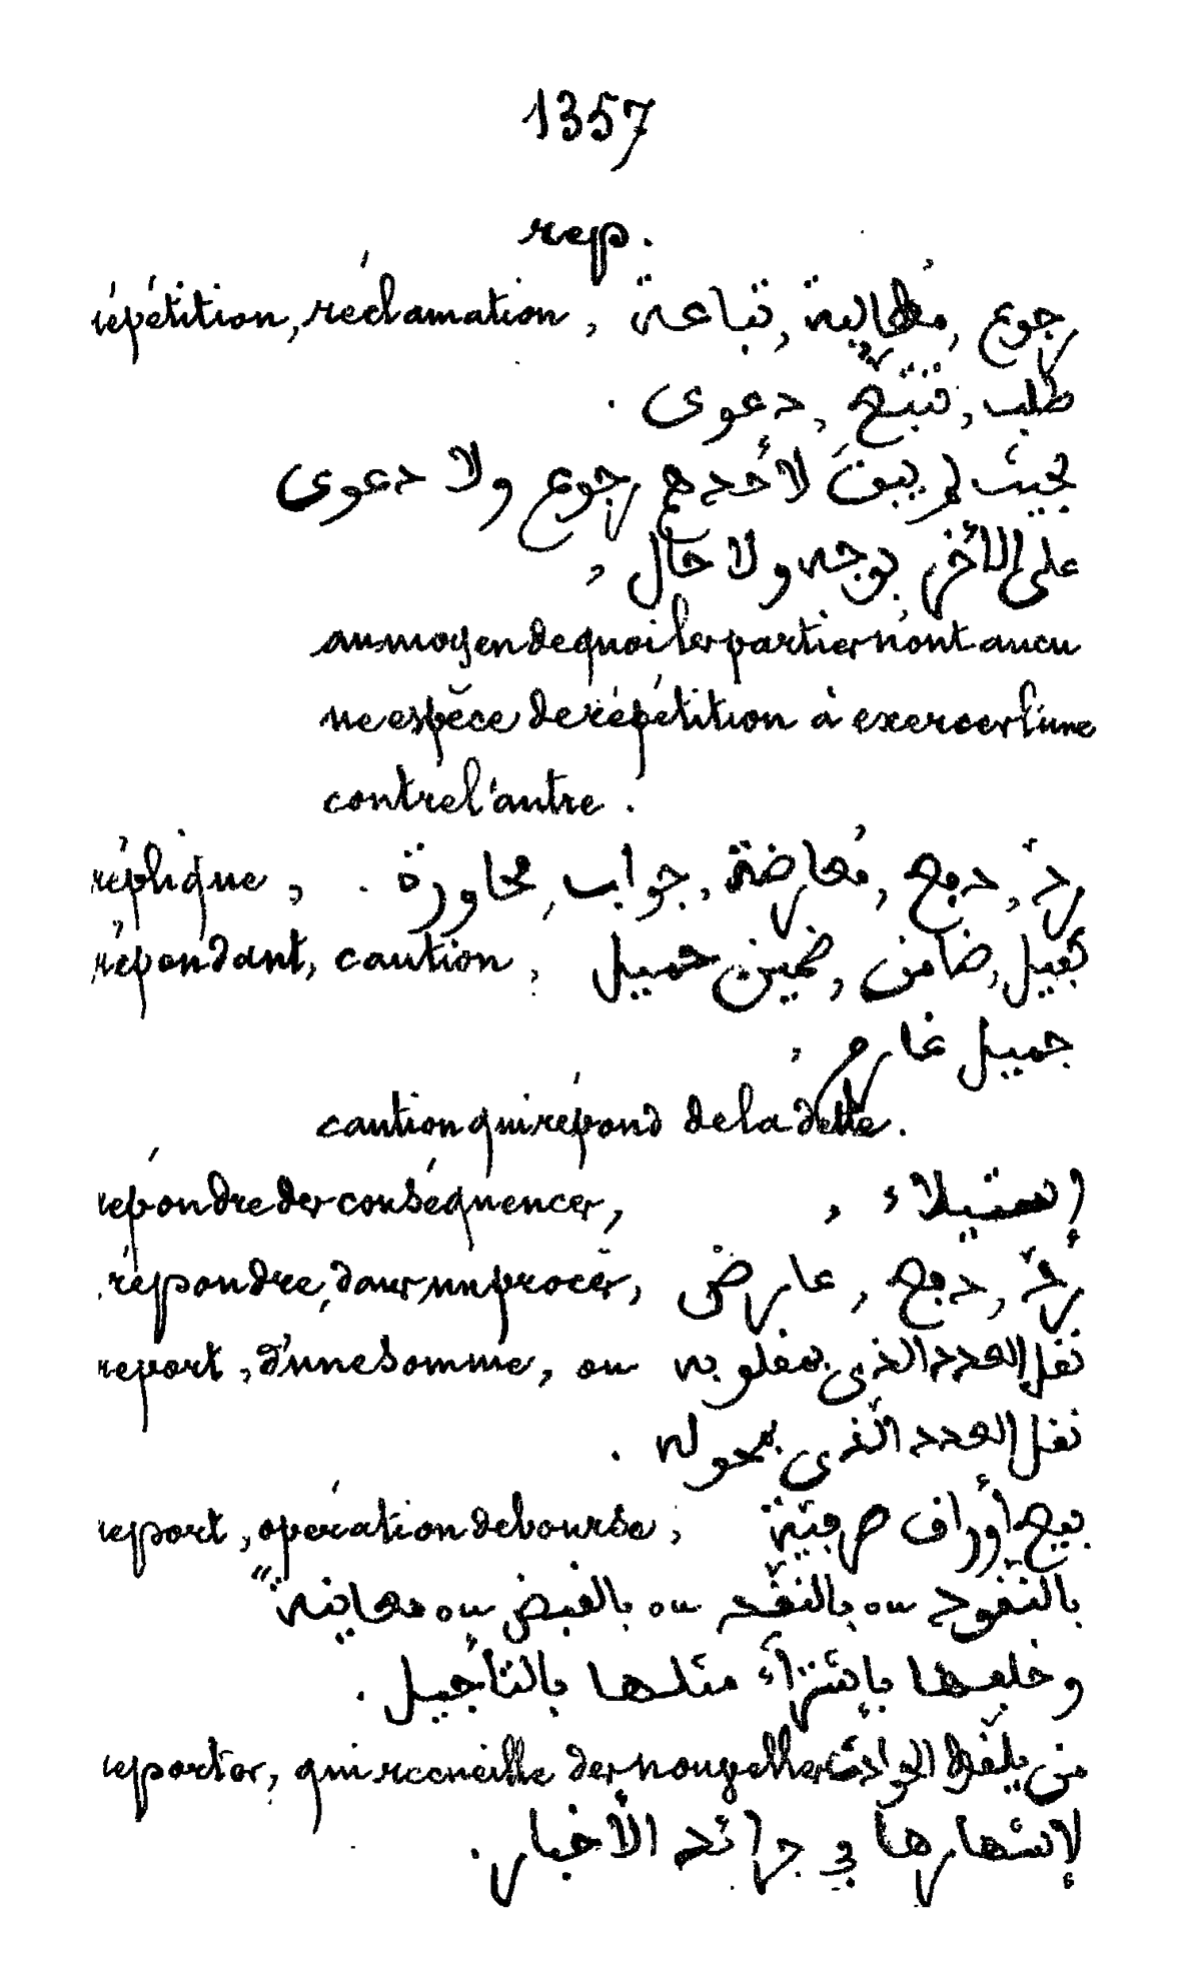 1357
rep.
répétition, réclamation, رجوع, مُطالبة, تباعة
طلب, تَتَبُّع, دعوى.
بحيث لم يبقَ لأحدهم رجوع ولا دعوى
على الأخر بوجه ولا حال,
au moyen de quoi les parties n'ont aucu
ne espèce de répétition à exercer l'une
contre l'autre.
réplique, ردّ, دفع, مُعارضة, جواب, محاورة.
répondant, caution, كفيل, ضامن, ضمين حميل
حميل غارم,
caution qui répond de la dette.
répondre des conséquences, إستيلاء,
répondre, dans un procès, ردّ, دفع, عارض
report, d'une somme, نقل العدد الذي ينقلو به ou
نقل العدد الّذي يحوله.
report, opération de bourse, بيع أوراق صرفيّة
بالنّقود ou بالنقد ou بالقبض ou معاينة"
وخلعها بإشترآء مثلها بالتأجيل.
reporter, qui recueille des nouvelles من يلقّط الحوادث
لإشهارها في جرائد الأخبار.